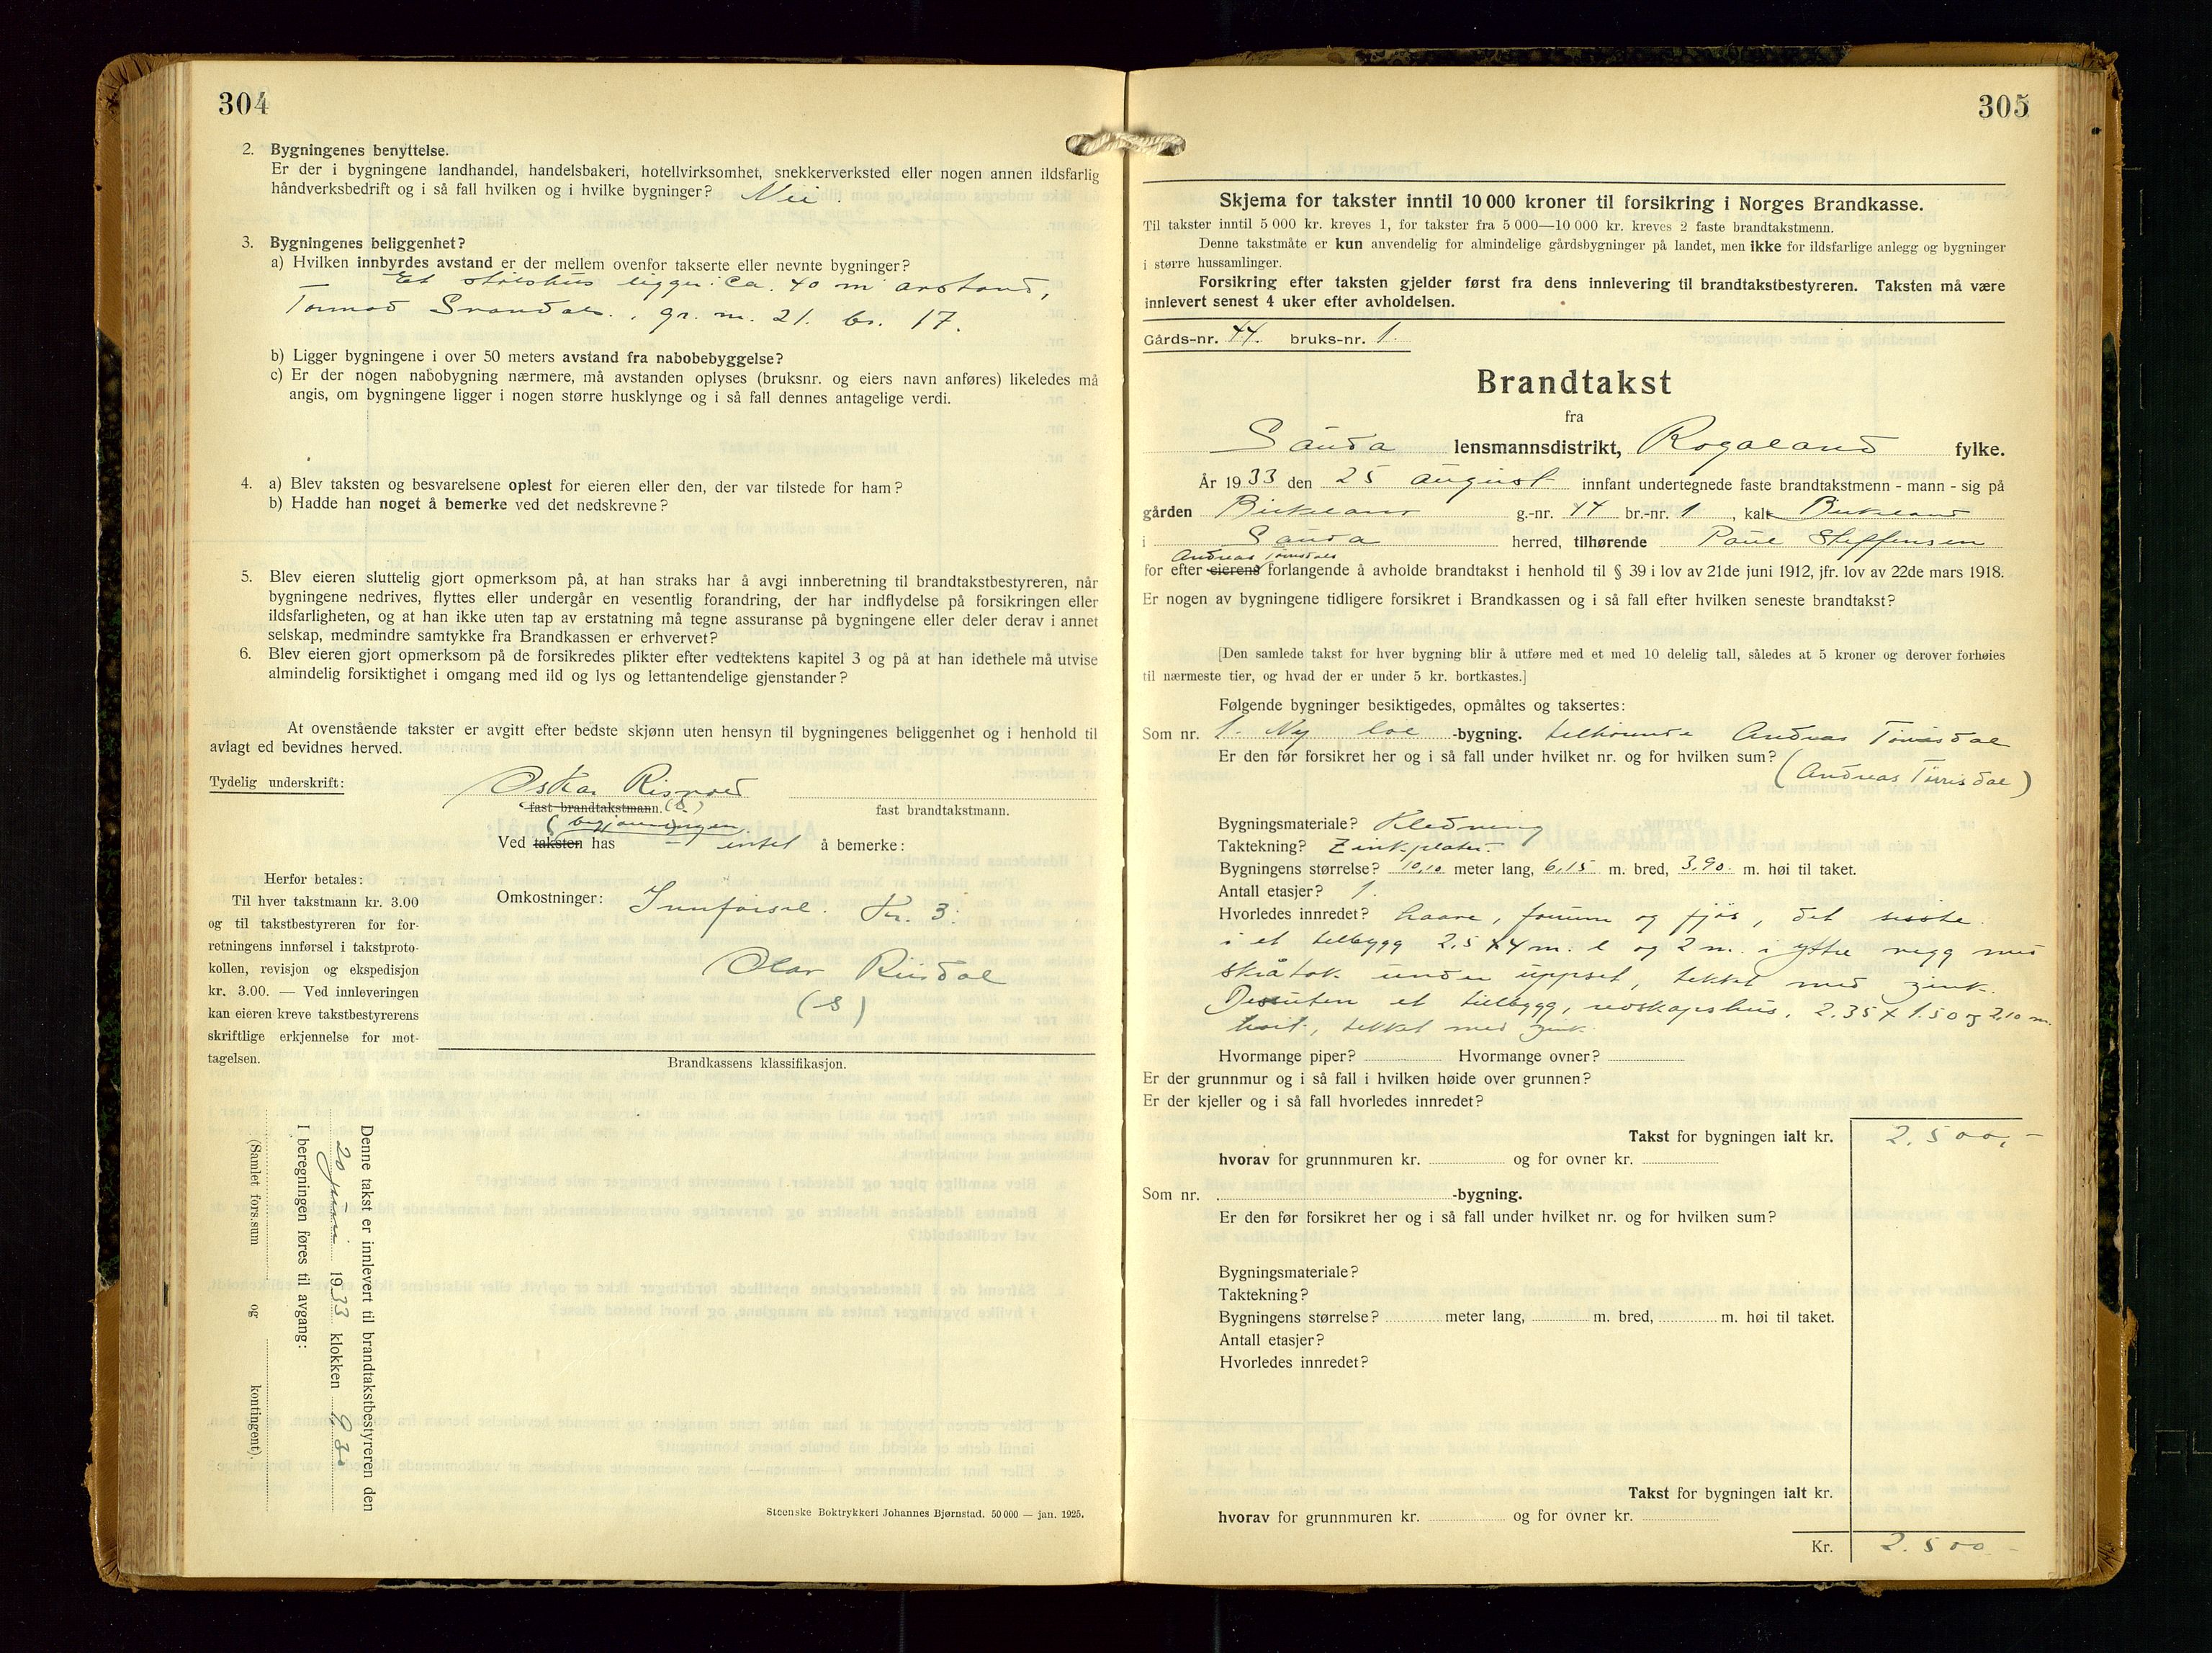 304
2. Bygningenes benyttelse.
Er der i bygningene landhandel, handelsbakeri, hotellvirksomhet, snekkerverksted eller nogen annen ildsfarlig
håndverksbedrift og i så fall hvilken og i hvilke bygninger? Nei.
3. Bygningenes beliggenhet?
a) Hvilken innbyrdes avstand er der mellem ovenfor takserte eller nevnte bygninger?
Et stølshus ligger ca. 40 m avstand,
Tormod Svandal. , gr. nr. 21. br. 17.
b) Ligger bygningene i over 50 meters avstand fra nabobebyggelse?
c) Er der nogen nabobygning nærmere, må avstanden oplyses (bruksnr. og eiers navn anføres) likeledes må
angis, om bygningene ligger i nogen større husklynge og i så fall dennes antagelige verdi.
4. a) Blev taksten og besvarelsene oplest for eieren eller den, der var tilstede for ham?
b) Hadde han noget å bemerke ved det nedskrevne?
5. Blev eieren sluttelig gjort opmerksom på, at han straks har å avgi innberetning til brandtakstbestyreren, når
bygningene nedrives, flyttes eller undergår en vesentlig forandring, der har indflydelse på forsikringen eller
ildsfarligheten, og at han ikke uten tap av erstatning må tegne assuranse på bygningene eller deler derav i annet
selskap, medmindre samtykke fra Brandkassen er erhvervet?
6. Blev eieren gjort opmerksom på de forsikredes plikter efter vedtektens kapitel 3 og på at han idethele må utvise
almindelig forsiktighet i omgang med ild og lys og lettantendelige gjenstander?
At ovenstående takster er avgitt efter bedste skjønn uten hensyn til bygningenes beliggenhet og i henhold til
avlagt ed bevidnes herved.
Tydelig underskrift: Oskar Risvold
fast brandtakstmann. (S) fast brandtakstmann.
Ved taksten has intet å bemerke:
Herfor betales:
Til hver takstmann kr. 3.00
og til takstbestyreren for for-
retningens innførsel i takstproto-
kollen, revisjon og ekspedisjon
kr. 3.00. — Ved innleveringen
kan eieren kreve takstbestyrerens
skriftlige erkjennelse for mot-
tagelsen.
Omkostninger: Innførsel. Kr. 3.
Olav Risdal
(S)
Brandkassens klassifikasjon.
Denne takst er innlevert til brandtakstbestyreren den
20 juni 1933 klokken
I beregningen føres til avgang:
(Samlet fors.sum og kontingent).
Steenske Boktrykkeri Johannes Bjørnstad. 50 000 — jan. 1925.
305
Skjema for takster inntil 10 000 kroner til forsikring i Norges Brandkasse.
Til takster inntil 5 000 kr. kreves 1, for takster fra 5 000—10 000 kr. kreves 2 faste brandtakstmenn.
Denne takstmåte er kun anvendelig for almindelige gårdsbygninger på landet, men ikke for ildsfarlige anlegg og bygninger
i større hussamlinger.
Forsikring efter taksten gjelder først fra dens innlevering til brandtakstbestyreren. Taksten må være
innlevert senest 4 uker efter avholdelsen.
Gårds-nr. 44. bruks-nr. 1.
Brandtakst
fra
Sauda lensmannsdistrikt, Rogaland fylke.
År 1933 den 25 august innfant undertegnede faste brandtakstmenn - mann - sig på
gården Birkeland g.-nr. 44 br.-nr. 1, kalt Birkeland
i Sauda herred, tilhørende Paul Steffensen
Andreas Tørrisdals
for efter eierens forlangende å avholde brandtakst i henhold til § 39 i lov av 21de juni 1912, jfr. lov av 22de mars 1918.
Er nogen av bygningene tidligere forsikret i Brandkassen og i så fall efter hvilken seneste brandtakst?
[Den samlede takst for hver bygning blir å utføre med et med 10 delelig tall, således at 5 kroner og derover forhøies
til nærmeste tier, og hvad der er under 5 kr. bortkastes.]
Følgende bygninger besiktigedes, opmåltes og taksertes:
Som nr. 1. Ny løe -bygning. tilhørende Andreas Tørrisdal
Er den før forsikret her og i så fall under hvilket nr. og for hvilken sum?
(Andreas Tørrisdal)
Bygningsmateriale? Kledning
Taktekning? Zinkplater.
Bygningens størrelse? 10,10 meter lang, 6,15 m. bred, 3,90. m. høi til taket.
Antall etasjer? 1.
Hvorledes innredet? Laave, forrum og fjøs, det sisste
i et tilbygg 2.5 x 4 m. l og 2 m. i yttre vegg med
skråtak under uppset, tekket med zink.
Desuten et tilbygg, redskapshus, 2.35 x 1.50 og 2,10 m.
høit, tekket med zink.
Hvormange piper? Hvormange ovner?
Er der grunnmur og i så fall i hvilken høide over grunnen?
Er der kjeller og i så fall hvorledes innredet?
Takst for bygningen ialt kr. 2.500,-
hvorav for grunnmuren kr. og for ovner kr.
Som nr. -bygning.
Er den før forsikret her og i så fall under hvilket nr. og for hvilken sum?
Bygningsmateriale?
Taktekning?
Bygningens størrelse? meter lang, m. bred, m. høi til taket.
Antall etasjer?
Hvorledes innredet?
Takst for bygningen ialt kr.
hvorav for grunnmuren kr. og for ovner kr.
Kr. 2.500 -